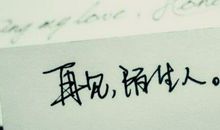 my love.
再见,陌生人。